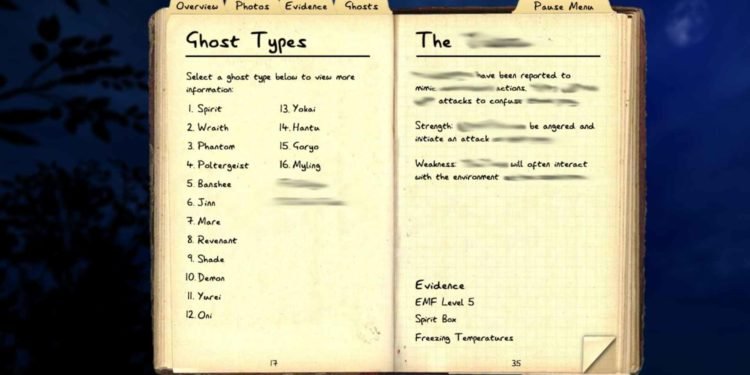 Overview Photos Evidence Ghosts Pause Menu
Ghost Types
Select a ghost type below to view more
information:
1. Spirit
2. Wraith
3. Phantom
4. Poltergeist
5. Banshee
6. Jinn
7. Mare
8. Revenant
9. Shade
10. Demon
11. Yurei
12. Oni
13. Yokai
14. Hantu
15. Goryo
16. Myling
17
The
have been reported to
mimic actions.
attacks to confuse
Strength: be angered and
initiate an attack
Weakness: will often interact
with the environment
Evidence
EMF Level 5
Spirit Box
Freezing Temperatures
35